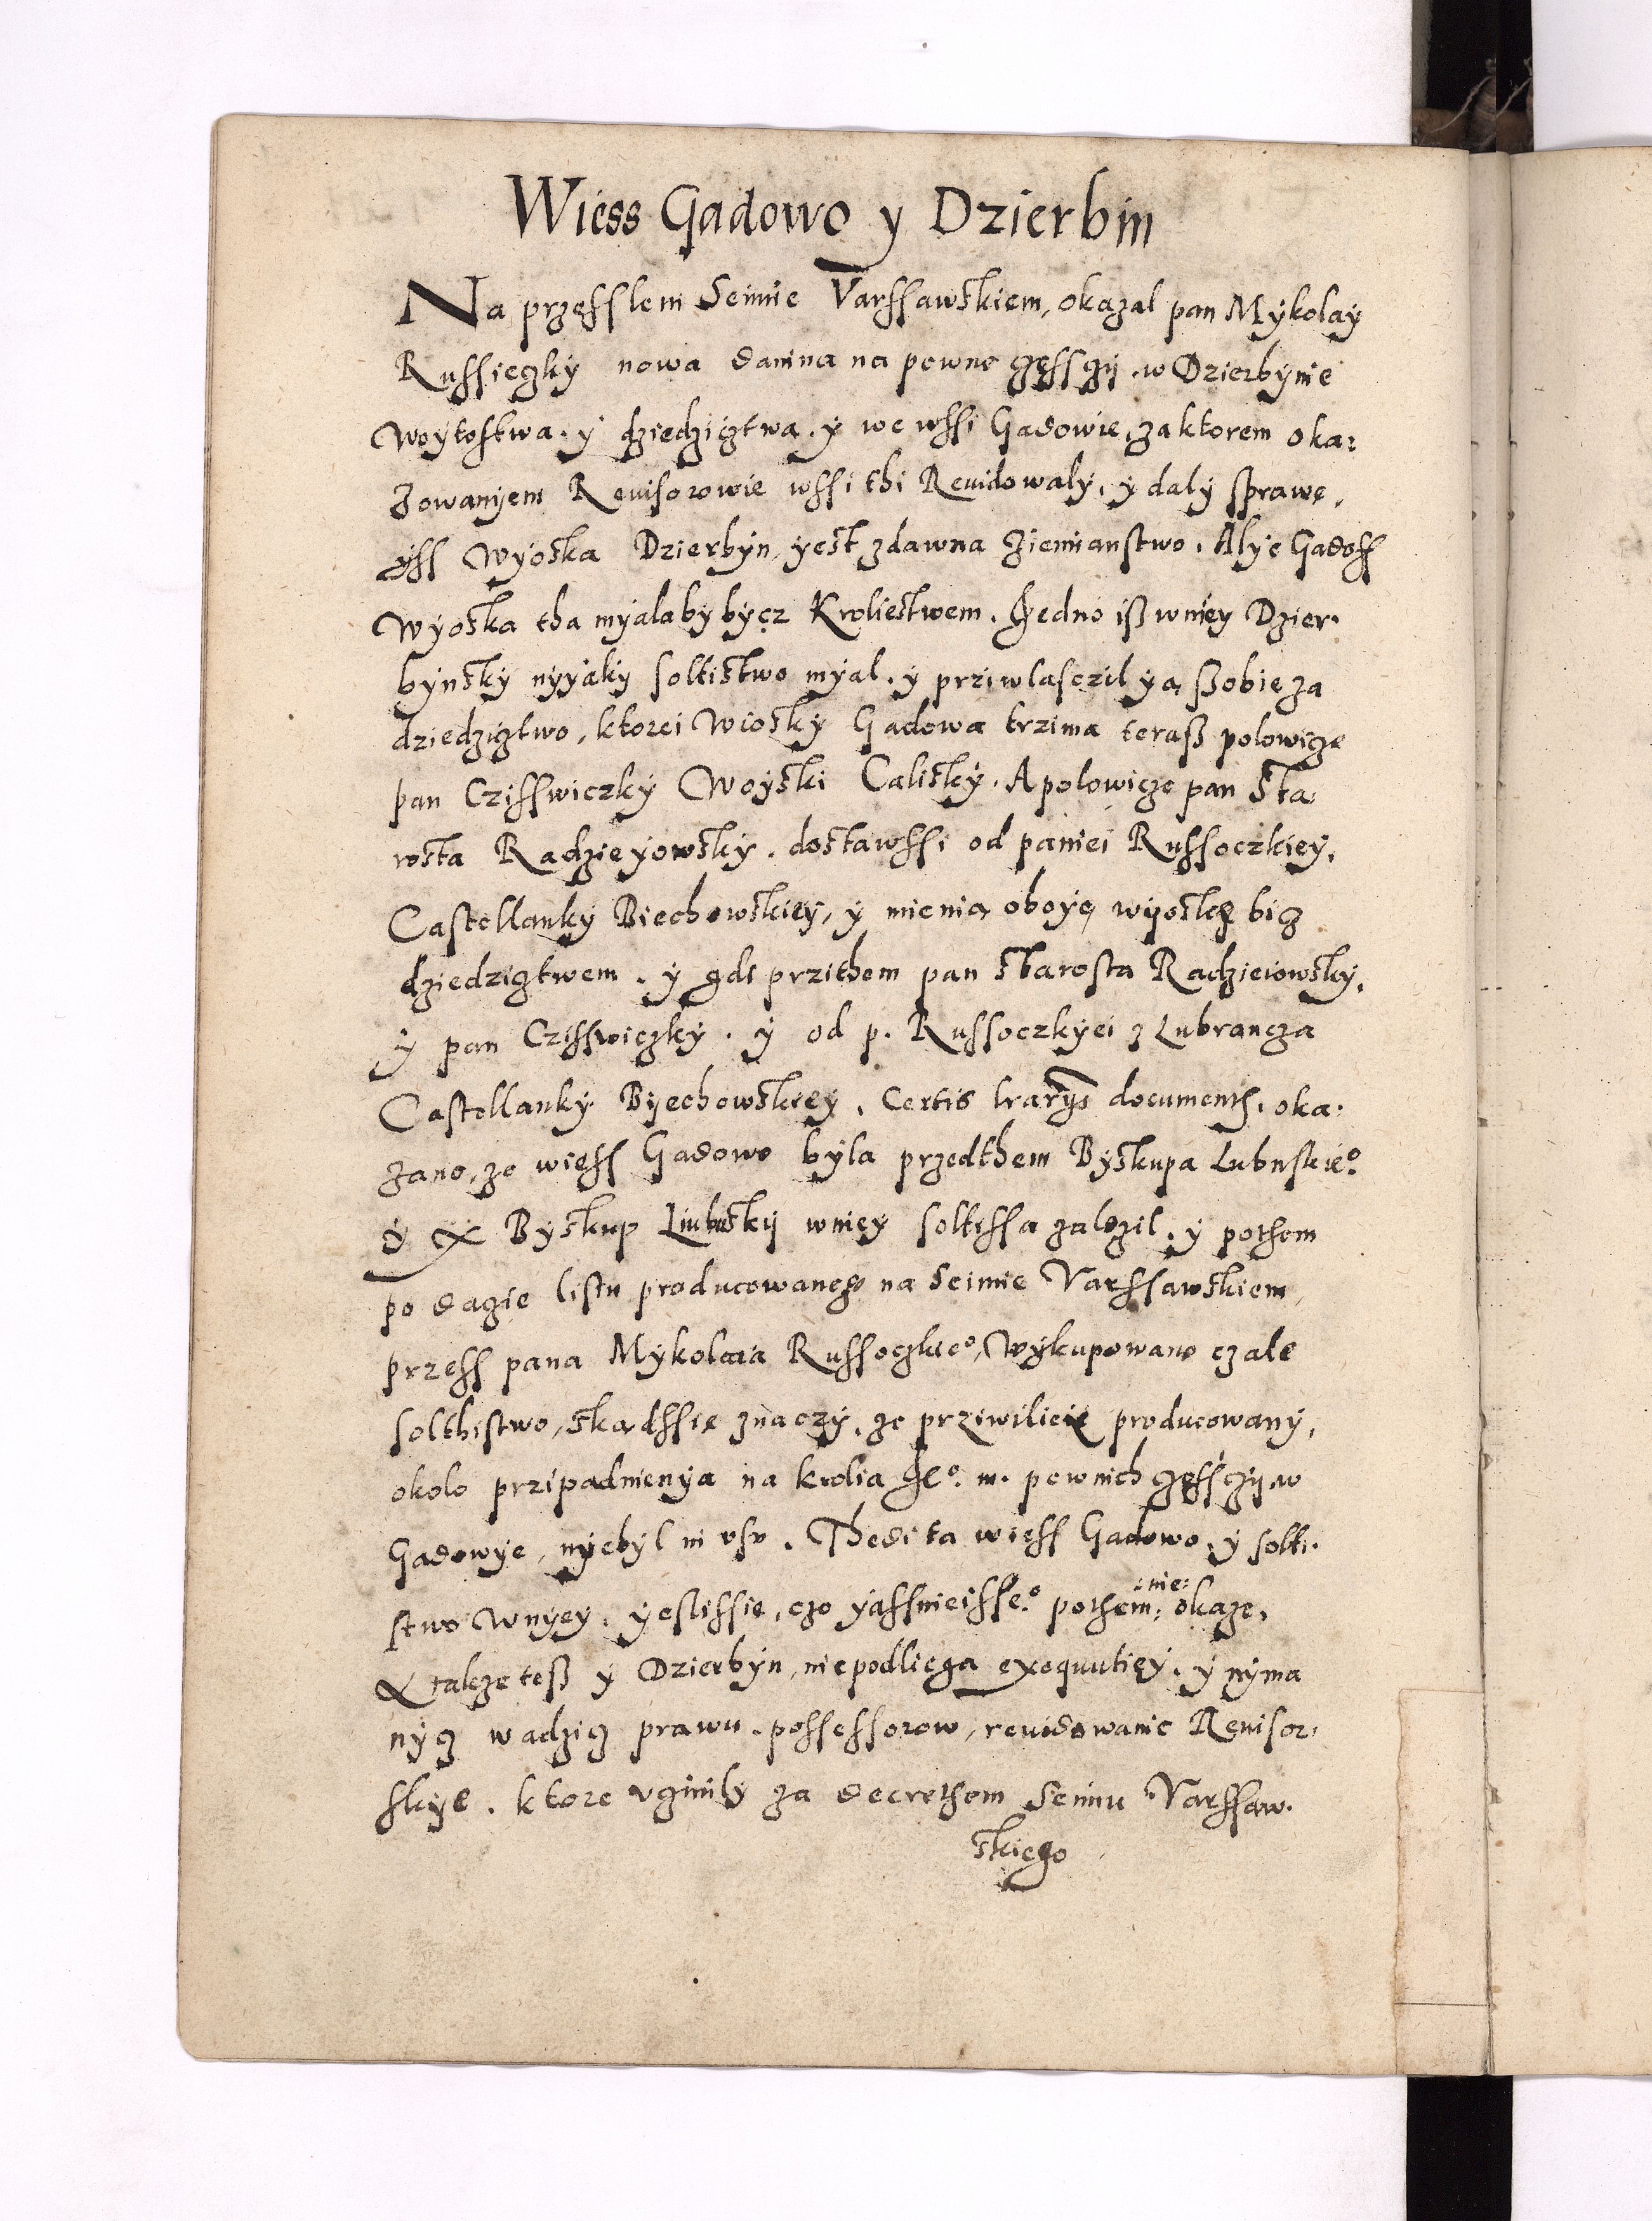 Wiess Gadowo y Dzierbin
Na przeſſlem Seimie Varſſawskiem, okazal pan Mÿkolaÿ
Ruſſieczkÿ nowa danina na pewne czeſſczÿ w Dzierbÿnie
Woÿtoſtwa. ÿ dziedzicztwa. ÿ we wſſi Gadowie, za ktorem oka:
zowanÿem Reuiſorowie wſſi thi Reuidowalÿ, ÿ dalÿ ſprawe,
ÿſſ Wÿoska Dzierbÿn, ÿest zdawna ziemianstwo. Alÿe Gadoſſ
Wÿoska tha mÿalabÿ bÿcz Kroliestwem. Jedno iß wnieÿ Dzier.
bÿnskÿ nÿÿakÿ ſoltistwo mÿal. ÿ priwlasczil ÿą ßobie za
dziedzicztwo, ktorei Wioskÿ Gadowa trzima teraß polowicze
pan Cziſſwiczkÿ Woÿski Caliskÿ. A polowicze pan Sta
rosta Radzieÿowskÿ. dostawſſi od paniei Ruſſoczkieÿ,
Caſtellankÿ Biechowskieÿ, ÿ mienią oboÿę wÿoskę bicz
dziedzicztwem. ÿ gdi przithem pan Starosta Radzieiowskÿ,
ÿ pan Cziſſwiczkÿ. ÿ od p. Ruſſoczkÿei z Lubrancza
Caſtellankÿ Bÿechowskieÿ. Certis lrarÿs documentis. oka.
zano, ze wieſſ Gadowo bÿla przedthem Bÿskupa Lubuskieº
ÿ X Bÿskup Liubuskÿ wnieÿ ſoltiſſa zalozil. ÿ pothem
po dacie liſtu producowanego na Seimie Varſſawskiem,
przeſſ pana Mÿkolaia Ruſſoczkieº, Wÿkupowano czale
ſolthiſtwo, skadſſie znaczÿ, ze prziwilieie producowanÿ,
okolo przipadnienÿa na krolia Jeº. m. pewnich czeſſczÿ w
Gadowÿe, nÿebÿl in vſu. Thedi ta wieſſ Gadowo, ÿ ſolti.
ſtwo Wnÿeÿ, ÿeſliſſie, czo ÿaſſnieiſſeº. pothem :nie: okaze,
X takze teß ÿ Dzierbÿn, niepodliega exequutieÿ. ÿ nÿma
nÿcz wadzicz prawu. poſſeſſorow, reuidowanie Reuiſor,
ſkÿe. ktore vczinilÿ za decrethem Seimu Varſſaw.
skiego